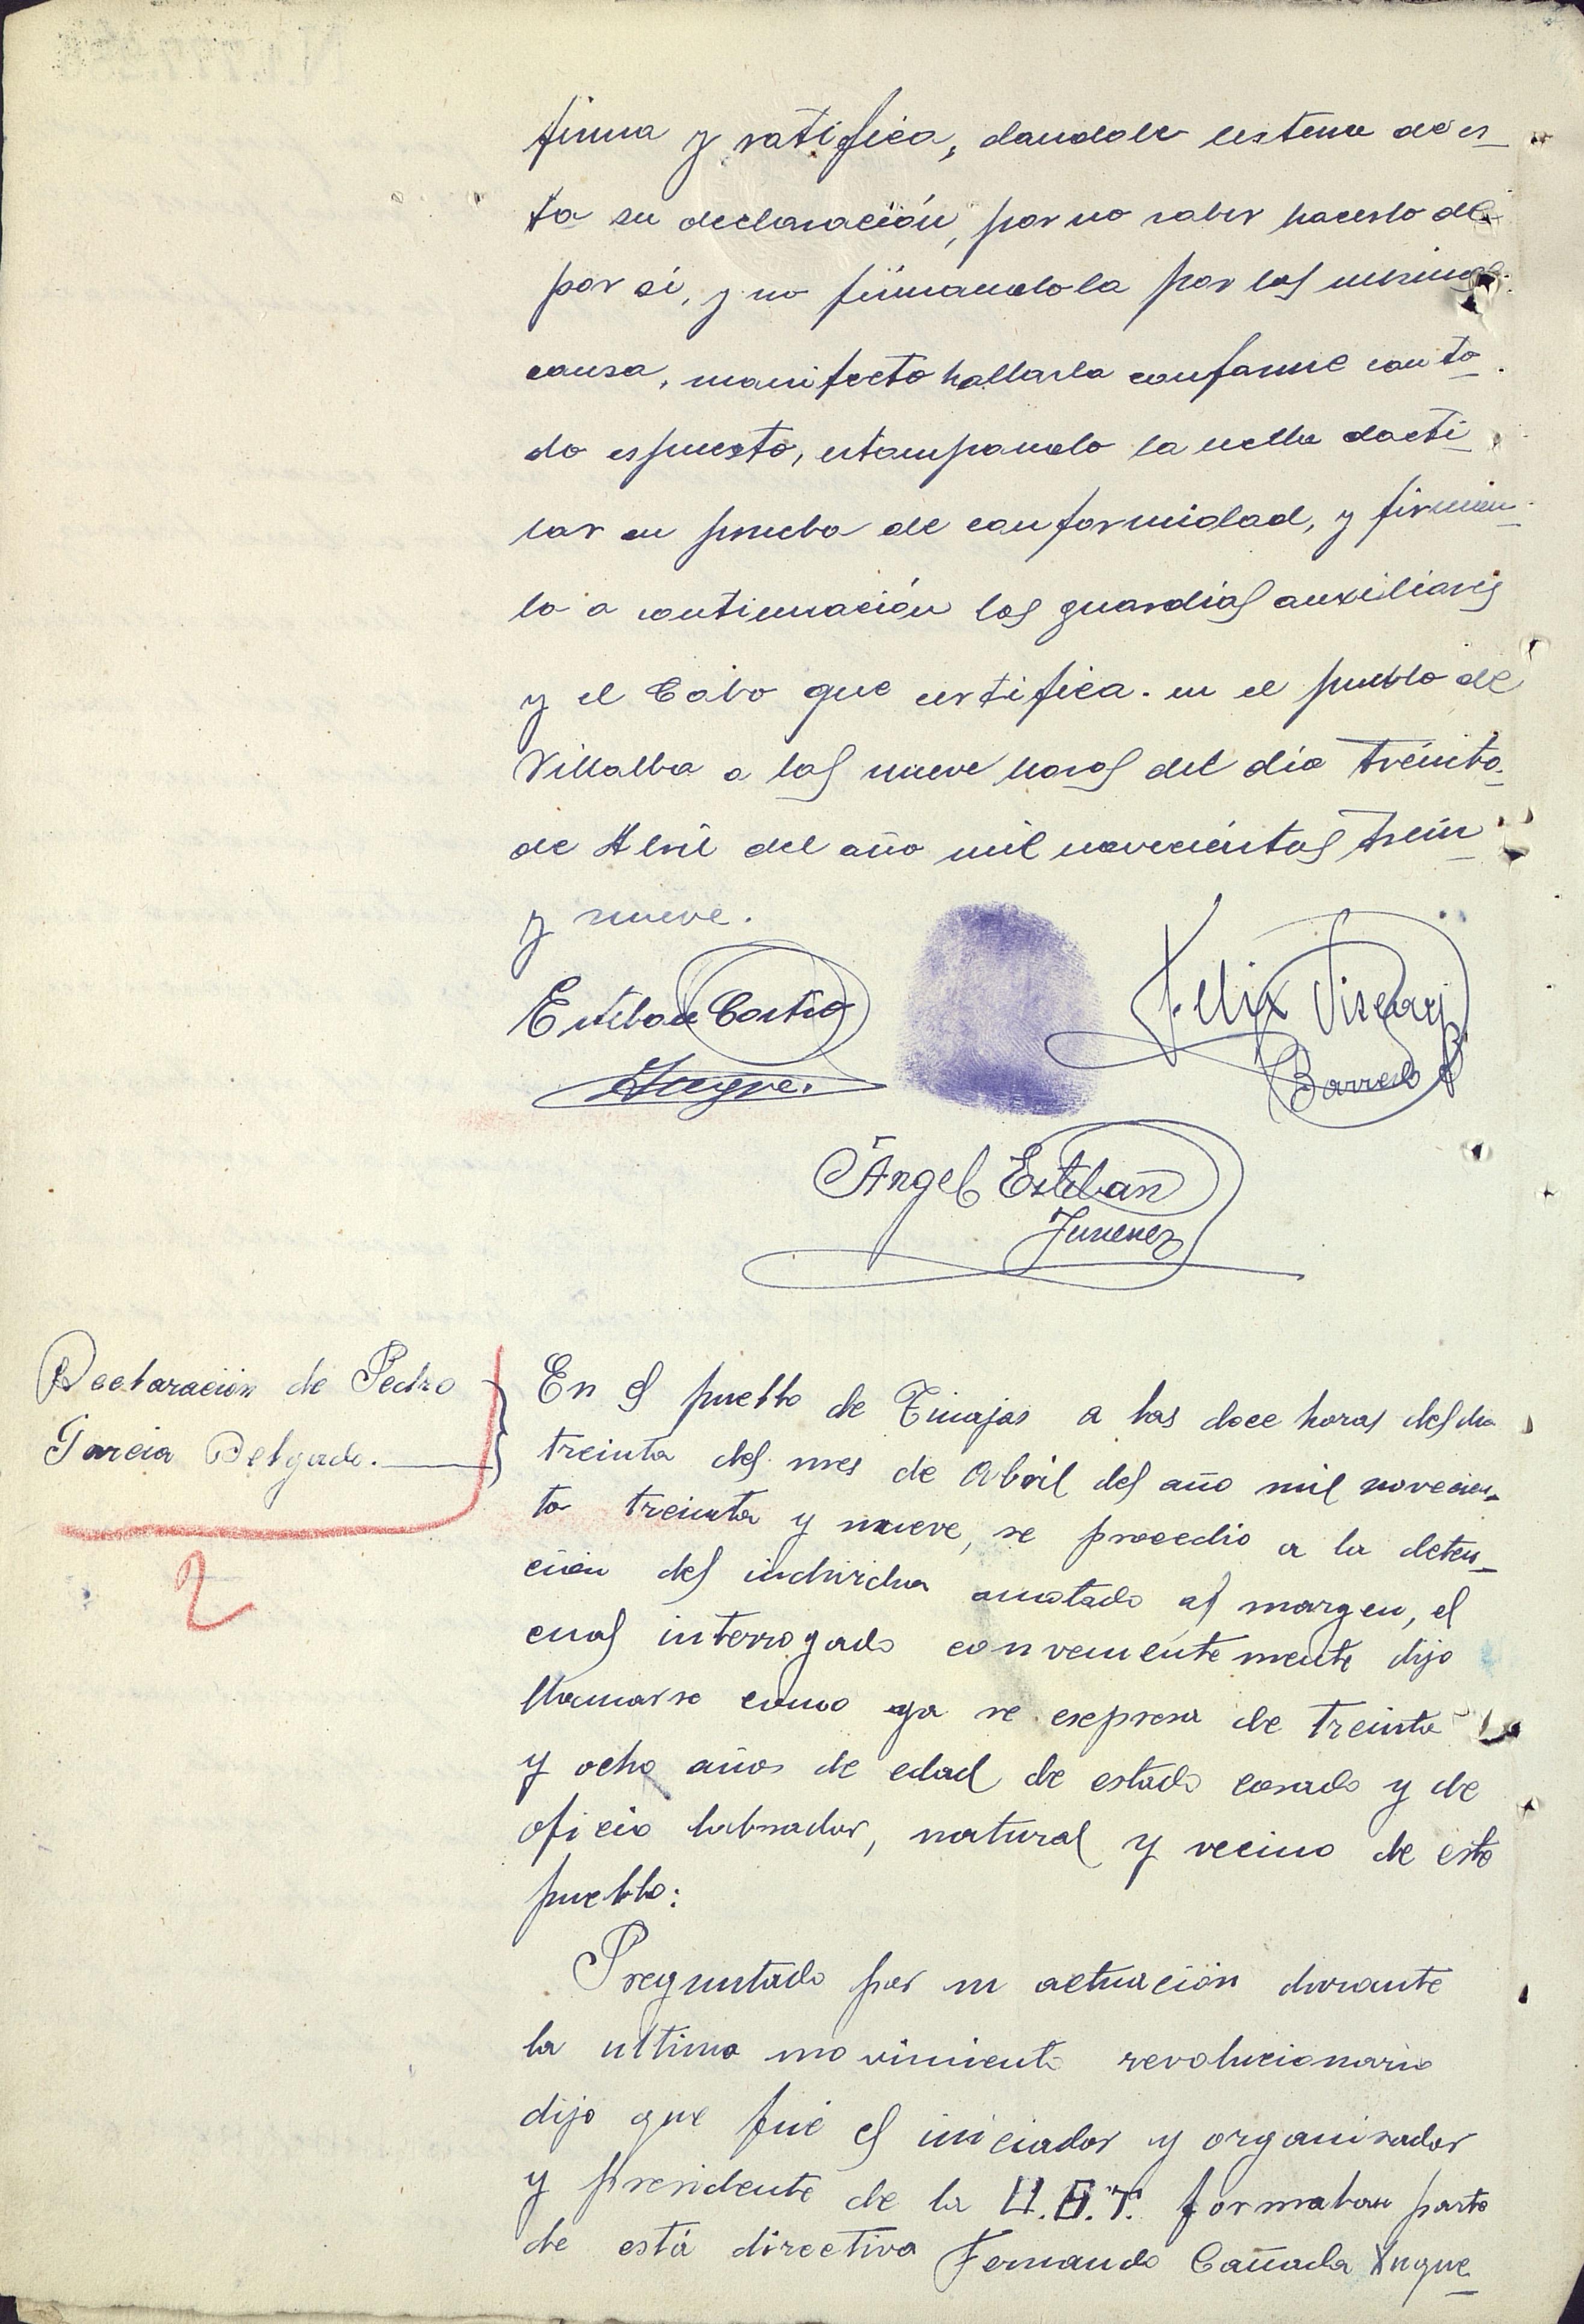 firma y ratifica, dandole lectura de es-
ta su declaración, por no saber hacerlo de
por si, y no firmandola por las mismas
causa, manifesto hallarla conforme con to-
do espuesto, estampando la uella dacti-
lar en prueba de conformidad, y firman-
lo a continuación los guardias auxiliares
y el Cabo que certifica. en el pueblo de
Villalba a las nueve horas del dia treinta
de Abril del año mil novecientos trein-
y nueve.
Esteban Castro
Felix Viscarj
Barredo
Angel Esteban
Jimenez
Declaración de Pedro
Garcia Delgado.
2
En el pueblo de Tinajas a las doce horas del dia
treinta del mes de Abril del año mil novecien-
to treinta y nueve, se procedio a la deten-
ción del individuo anotado al margen, el
cual interrogado convenientemente dijo
llamarse como ya se expresa de treinta
y ocho años de edad de estado casado y de
oficio labrador, natural y vecino de este
pueblo:
Preguntado por su actuación durante
la ultimo movimiento revolucionario
dijo que fué el iniciador y organisador
y presidente de la U.G.T. formaban parte
de está directiva Fernando Cañada